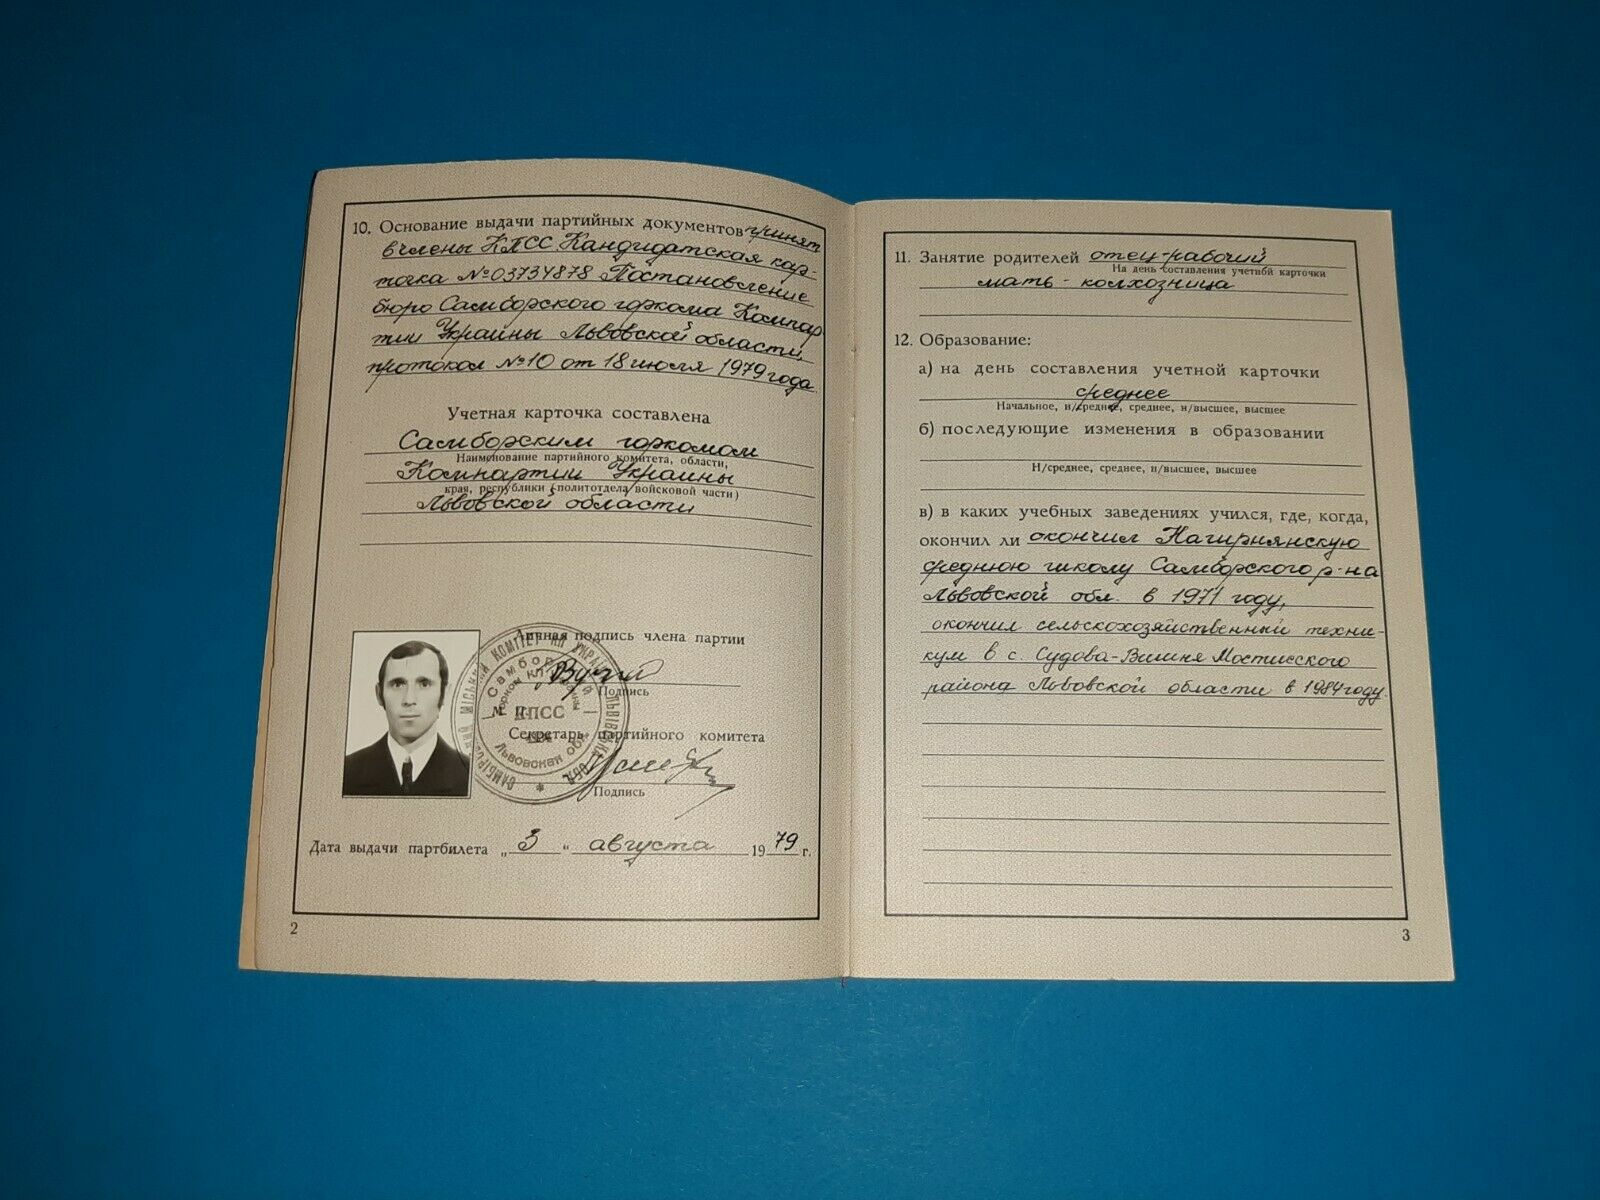 10. Основание выдачи партийных документов принят
в члены КПСС. Кандидатская кар-
точка №03734878 Постановление
бюро Самборского горкома Компар
тии Украины Львовской области,
протокол №10 от 18 июля 1979 года.
Учетная карточка составлена
Самборским горкомом
Наименование партийного комитета, области,
Компартии Украины
края, республики (политотдела войсковой части)
Львовской области
Личная подпись члена партии
Подпись
М. П.
Секретарь партийного комитета
Подпись
САМБІРСЬКИЙ МІСЬКИЙ КОМІТЕТ КП УКРАЇНИ ЛЬВІВСЬКА ОБЛ.
Самборский
горком КП Украины
КПСС
Львовская обл.
Дата выдачи партбилета „3“ августа 1979 г.
2
11. Занятие родителей отец-рабочий
На день составления учетной карточки
мать - колхозница
12. Образование:
а) на день составления учетной карточки
среднее
Начальное, н/среднее, среднее, н/высшее, высшее
б) последующие изменения в образовании
Н/среднее, среднее, н/высшее, высшее
в) в каких учебных заведениях учился, где, когда,
окончил ли окончил Нагирнянскую
среднюю школу Самборского р-на
Львовской обл. в 1971 году,
окончил сельскохозяйственный техни-
кум в с. Судова-Вишня Мостисского
района Львовской области в 1984 году.
3